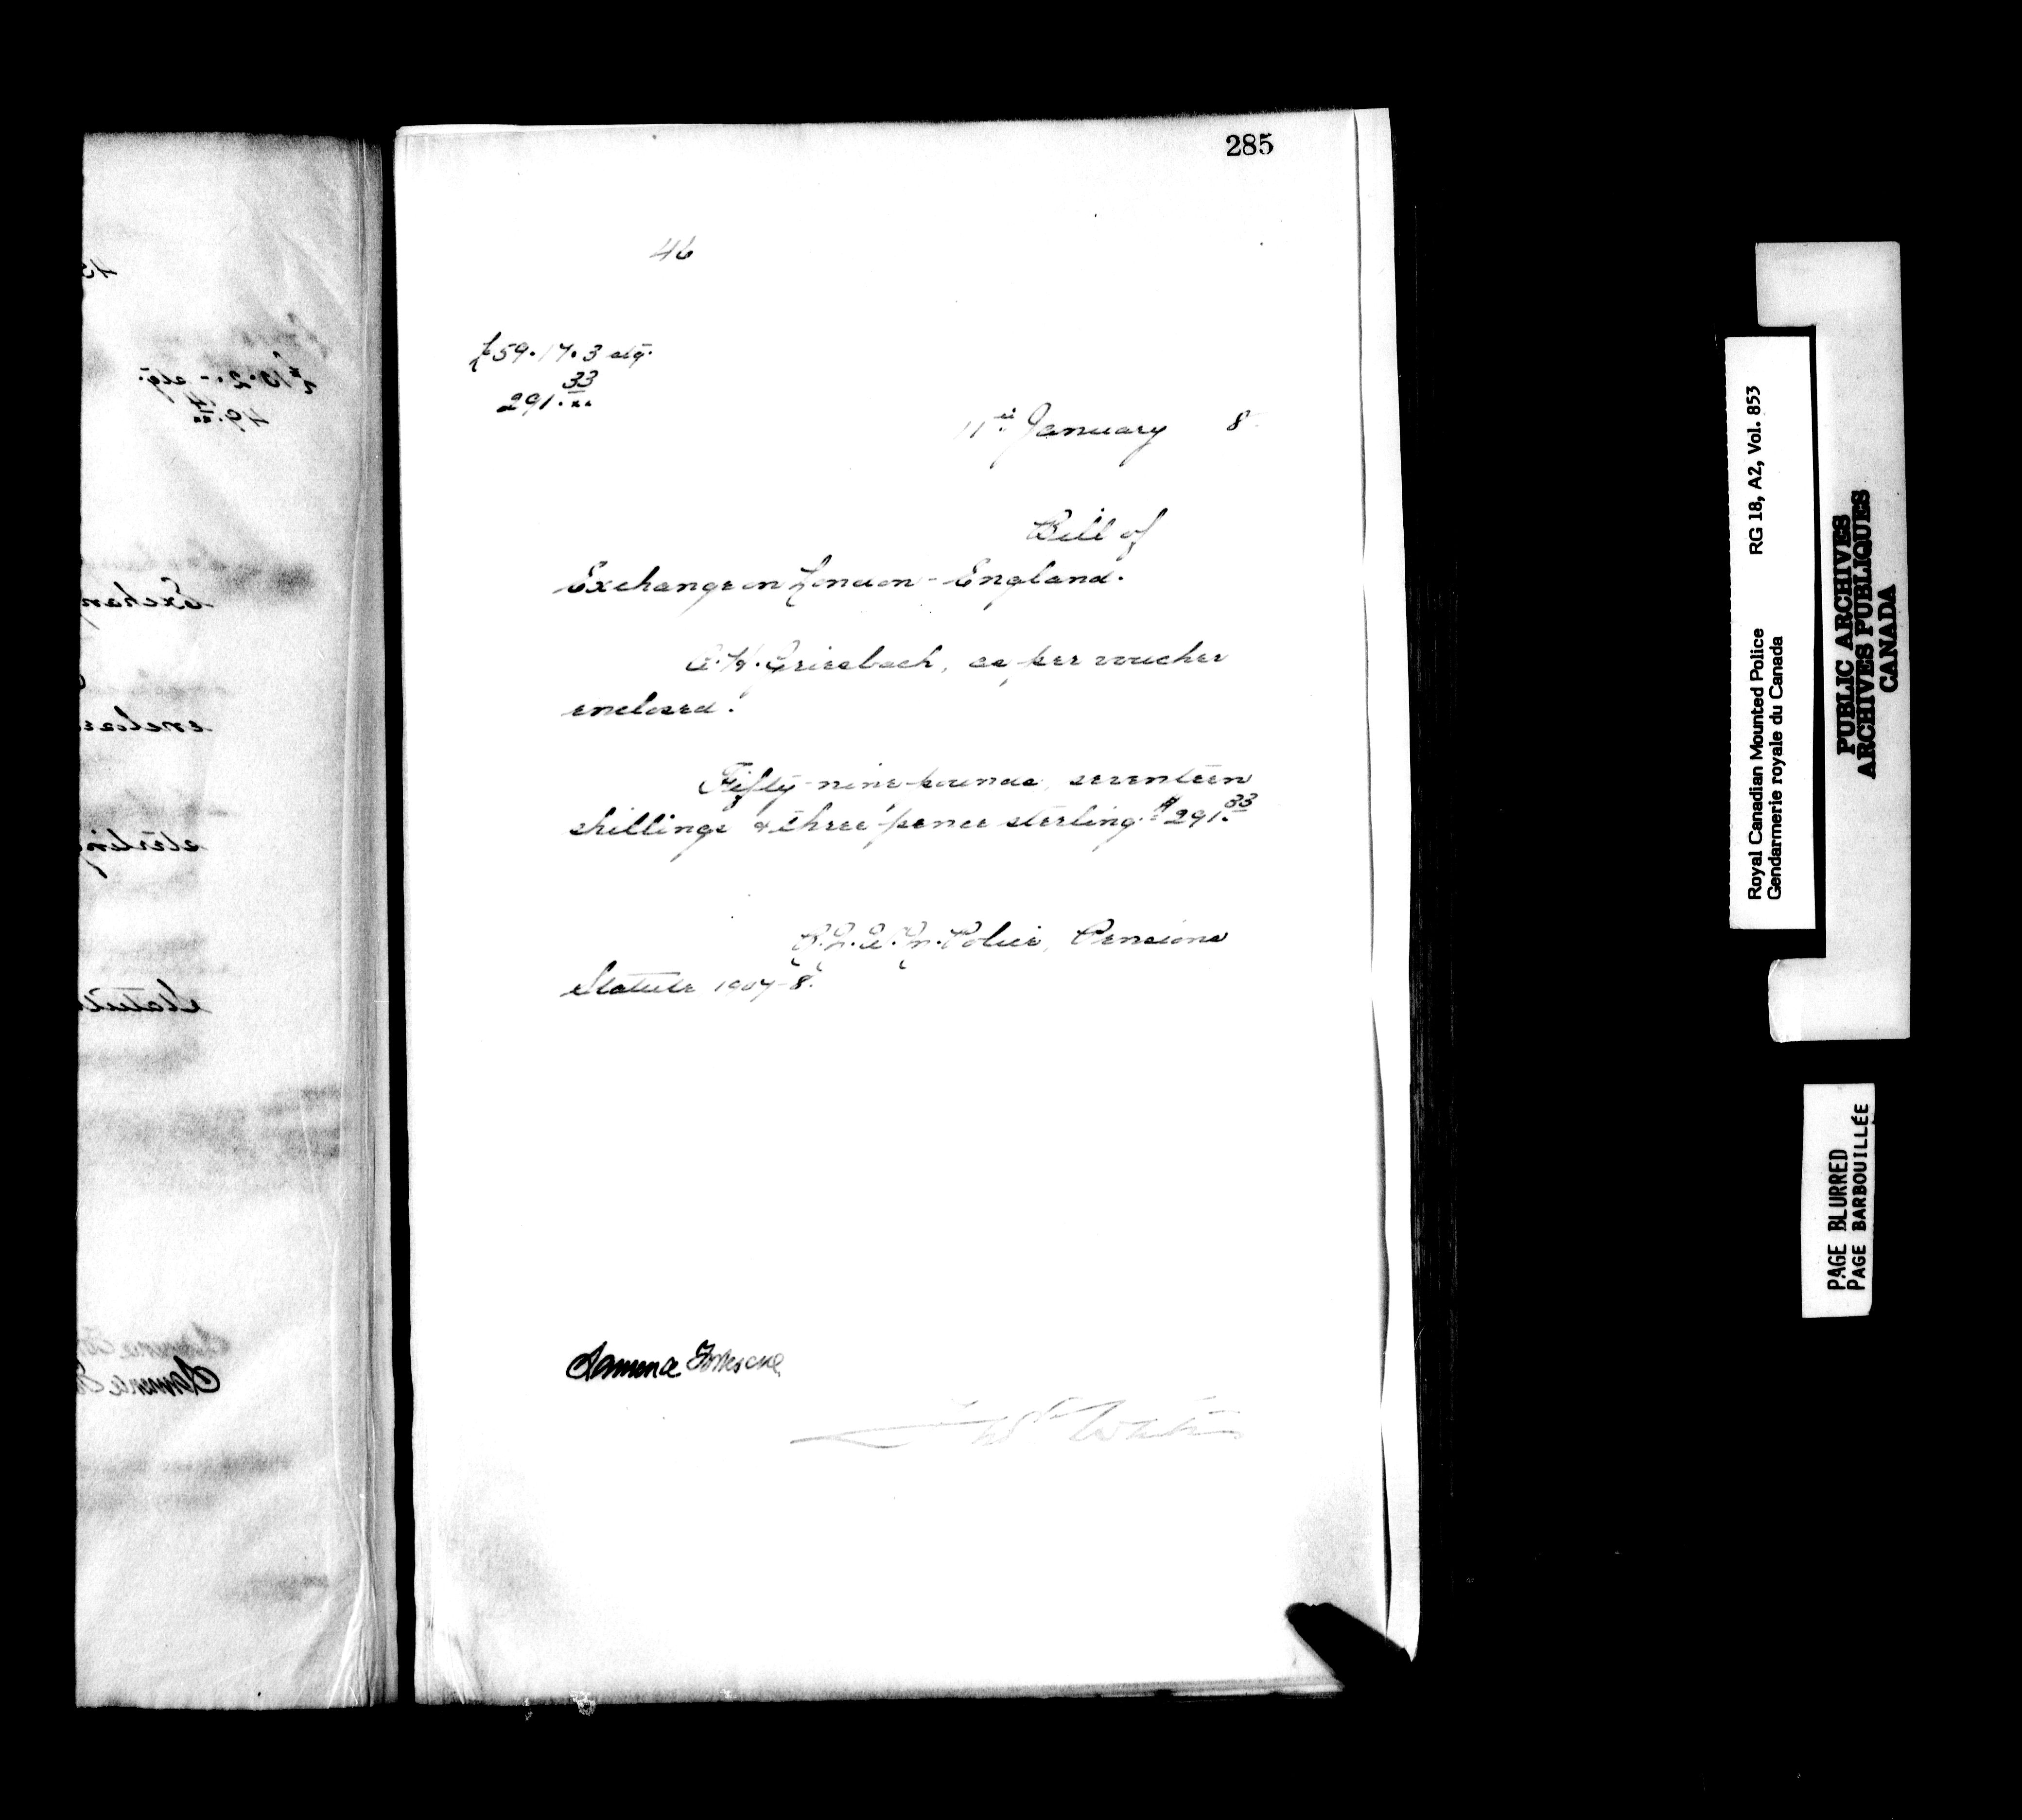 285
46
£59.17.3 stg.
291.33/xx
11th January 8
Bill of
Exchange on London - England.
A.H. Griesbach, as per voucher
enclosed.
Fifty-nine pounds, seventeen
shillings & three pence sterling. $291.33
Police, Pensions
Statute 1907-8.
Laurence Fortescue
White
Exchan
enclose
sterling
Statute
Royal Canadian Mounted Police RG 18, A2, Vol. 853
Gendarmerie royale du Canada
PUBLIC ARCHIVES
ARCHIVES PUBLIQUES
CANADA
PAGE BLURRED
PAGE BARBOUILLÉE